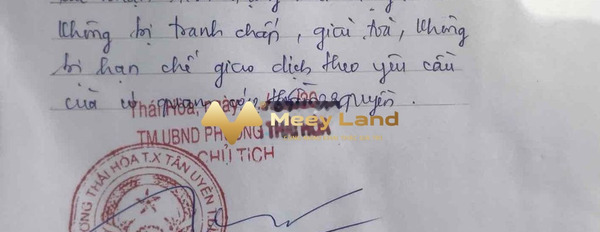 Không bị tranh chấp, giải toả, không
bị hạn chế giao dịch theo yêu cầu
của cơ quan có thẩm quyền.
Thái Hòa, ngày
Meey Land
TM.UBND PHƯỜNG THÁI HÒA
CHỦ TỊCH
THÁI HÒA T.X TÂN UYÊN T.B